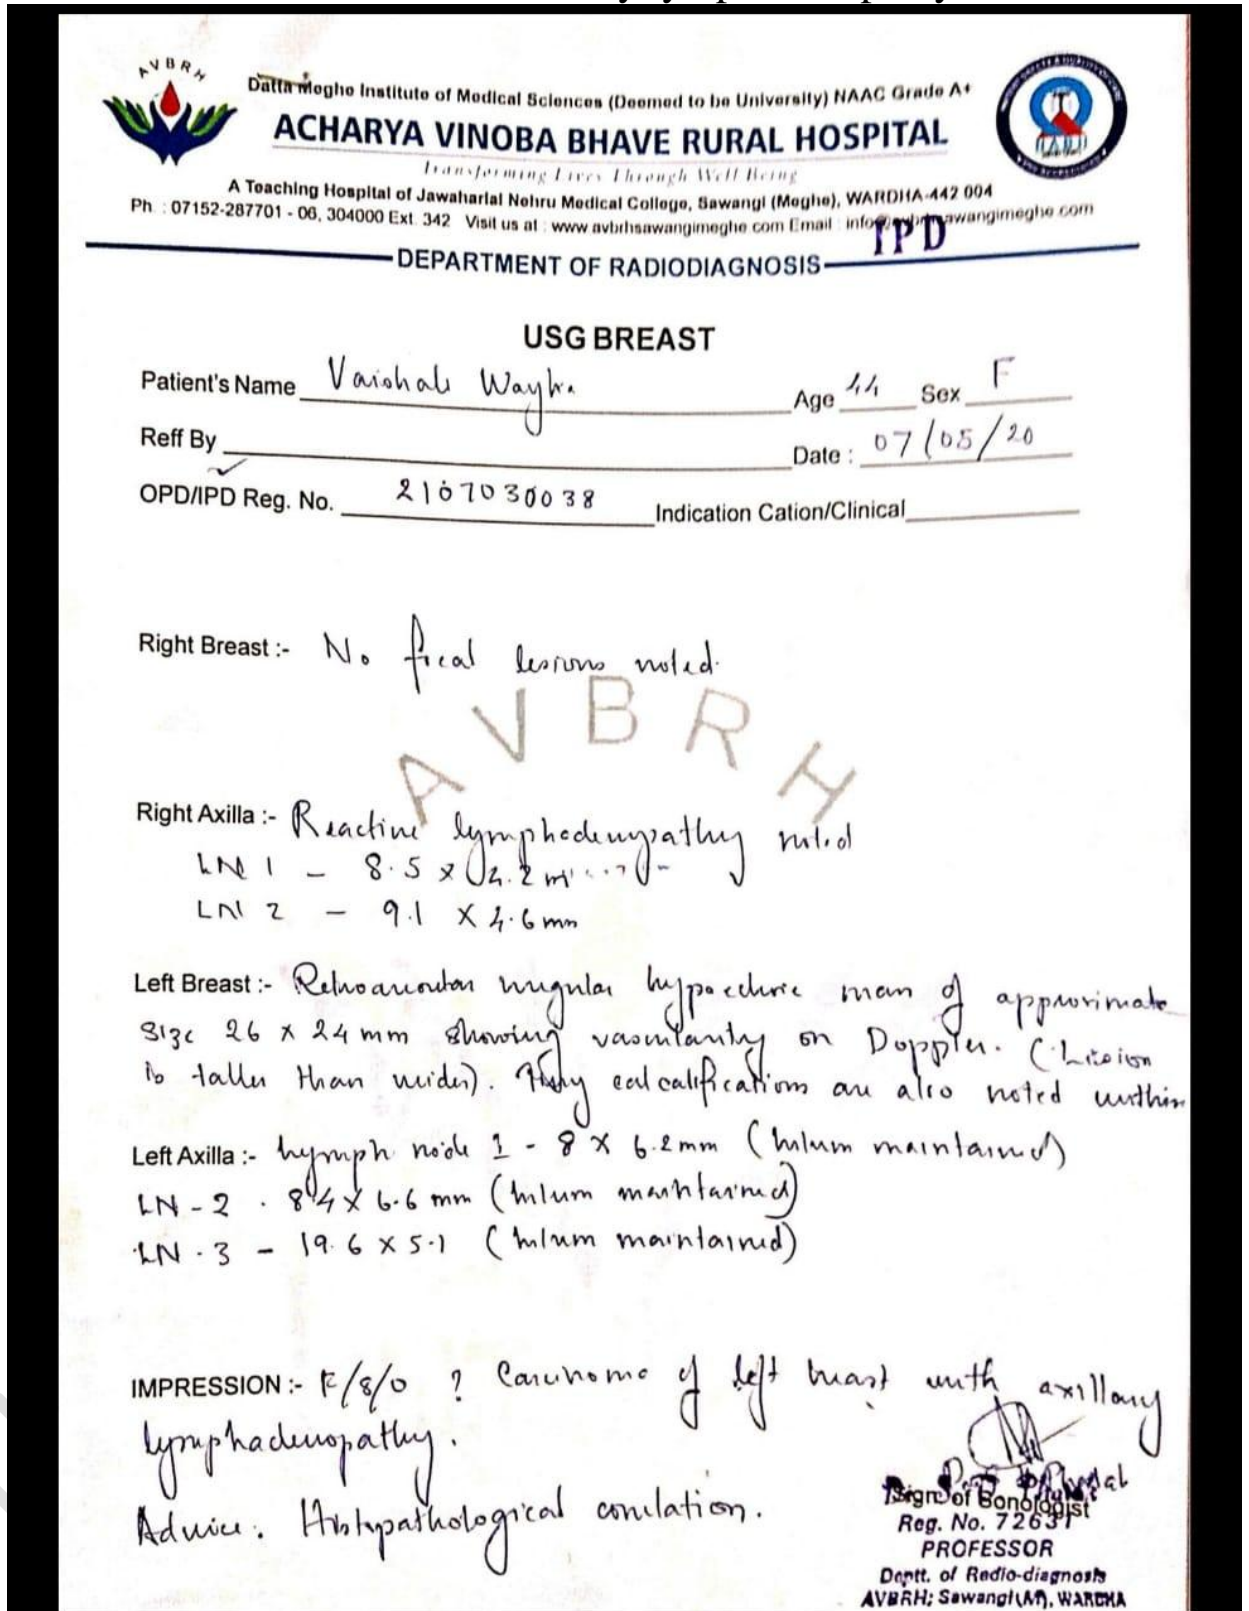 AVBRH
Datta Meghe Institute of Medical Sciences (Deemed to be University) NAAC Grade A+
ACHARYA VINOBA BHAVE RURAL HOSPITAL
Transforming Lives Through Well Being
A Teaching Hospital of Jawaharlal Nehru Medical College, Sawangi (Meghe), WARDHA-442 004
Ph. : 07152-287701 - 06, 304000 Ext. 342 Visit us at : www avbrhsawangimeghe com Email :
IPD
DEPARTMENT OF RADIODIAGNOSIS
USG BREAST
Patient's Name Vaishali Age 44 Sex F
Reff By Date : 07/05/20
OPD/IPD Reg. No. 2107030038 Indication Cation/Clinical
Right Breast :- No focal lesions noted.
AVBRH
Right Axilla :- Reactive lymphadenopathy noted
LN 1 - 8.5 x 4.2
LN 2 - 9.1 X 4.6 mm
Left Breast :- Retroareolar irregular hypoechoic mass of approximate
size 26 x 24 mm showing vascularity on Doppler. (Lesion
is taller than wider). calcifications are also noted within
Left Axilla :- Lymph node 1 - 8 X 6.2 mm (hilum maintained)
LN - 2 . 8.4 X 6.6 mm (hilum maintained)
LN - 3 - 19.6 X 5.1 (hilum maintained)
IMPRESSION :- F/S/O ? Carcinoma of left breast with axillary
lymphadenopathy.
Advice : Histopathological correlation.
Sign of Sonologist
Reg. No. 72631
PROFESSOR
Deptt. of Radio-diagnosis
AVBRH; Sawangi (M), WARDHA